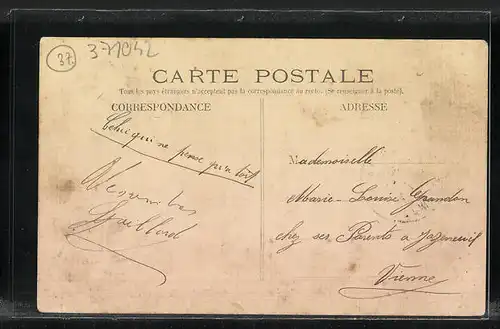 37
371042
CARTE POSTALE
Tous les pays étrangers n'acceptent pas la correspondance au recto. (Se renseigner à la poste).
CORRESPONDANCE
ADRESSE
Celui qui ne pense qu'à toi
Gaillard
Mademoiselle
Marie-Louise
chez ses Parents à Jazeneuil
Vienne